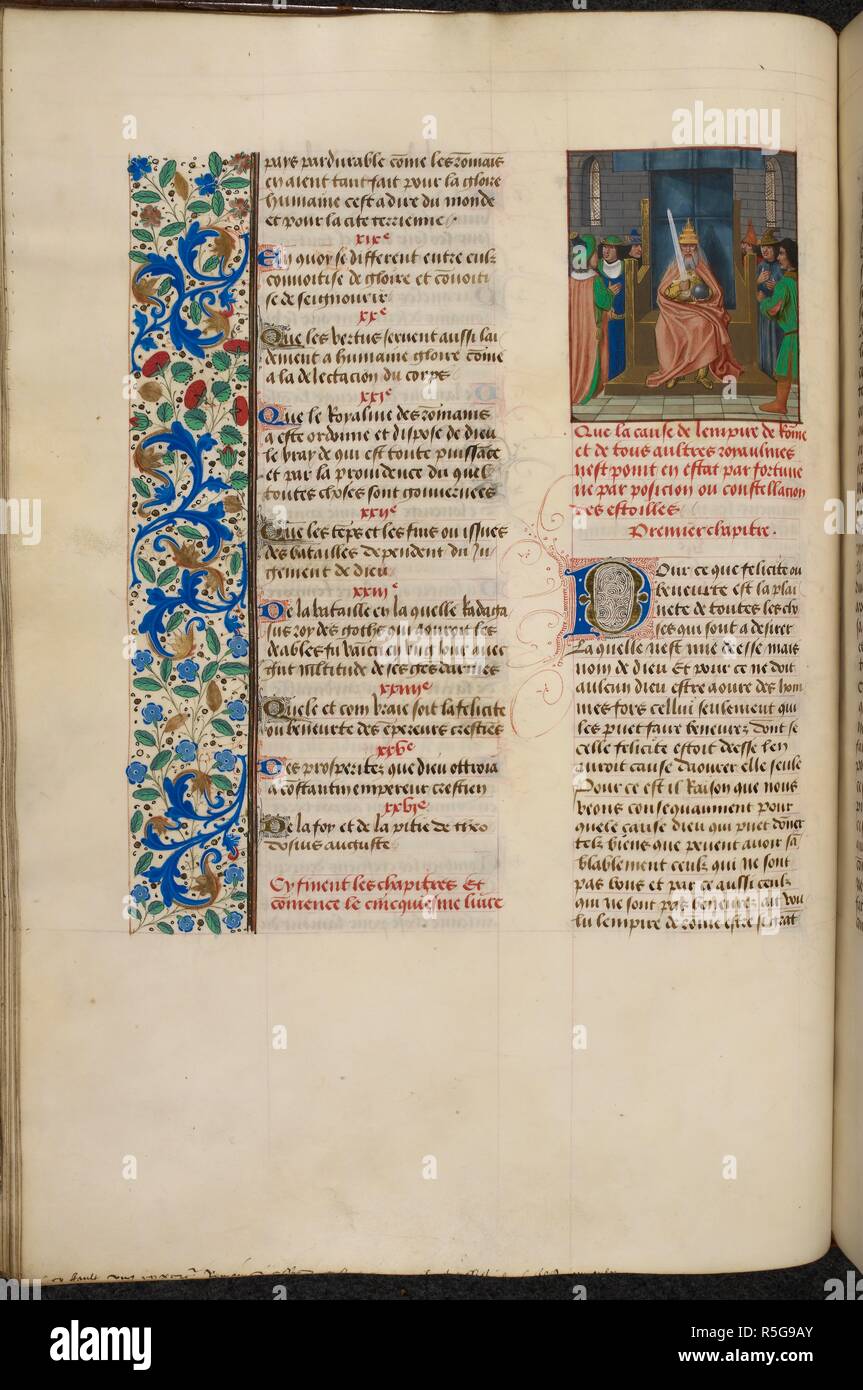 pays pardurable cõme les rõmais
en aient tant fait pour la gloire
humaine cest a dire du monde
et pour la cite terrienne.
xixe
En quoy se different entre eulz
couuoitise de gloire et couuoiti
se de seignourir
xxe
Que les vertus seruent aussi lai
dement a humaine gloire cõme
a la delectacion du corps
xxie
Que le Royalme des rommains
a este ordonne et dispose de dieu
le vray de qui est toute puissãce
et par la prouidence du quel
toutes choses sont gouuernees
xxiie
Que les tẽps et les fins ou issues
des batailles dependent du Ju
gement de dieu
xxiiie
De la bataille en la quelle Radaga
sus roy des goths qui aouroit les
deables fu vaincu en vng Jour auec
multitude de ses gẽs darmes
xxiiiie
Quele et com vraie soit la felicite
ou beneurte des ẽpereurs crestiẽs
xxve
Des prosperitez que dieu ottroia
a costantin empereur crestien
xxvie
De la foy et de la pitie de theo
dosius auguste
Cy finent les chapitres Et
cõmence le cincquiesme liure
Que la cause de lempire de Rõme
et de tous aultres royaulmes
nest point en estat par fortune
ne par posicion ou constellacion
des estoilles
Premier chapitre.
Pour ce que felicite ou
beneurte est la plai
nete de toutes les cho
ses qui sont a desirer
La quelle nest mie deesse mais
nom de dieu Et pour ce ne doit
aulcun dieu estre aoure des hom
mes fors cellui seulement qui
les puet faire beneurez dont se
celle felicite estoit deesse len
auroit cause daourer elle seule
Pour ce est il Raison que nous
veons consequanment pour
quele cause dieu qui puet dõner
telz biens que peuent auoir sã
blablement ceulz qui ne sont
pas bons et par ce aussi ceulz
qui ne sont pas beneurez ait vou
lu lempire de rõme estre si grãt
a
alamy
alamy stock photo
alamy
Image ID: R5G9AY
www.alamy.com